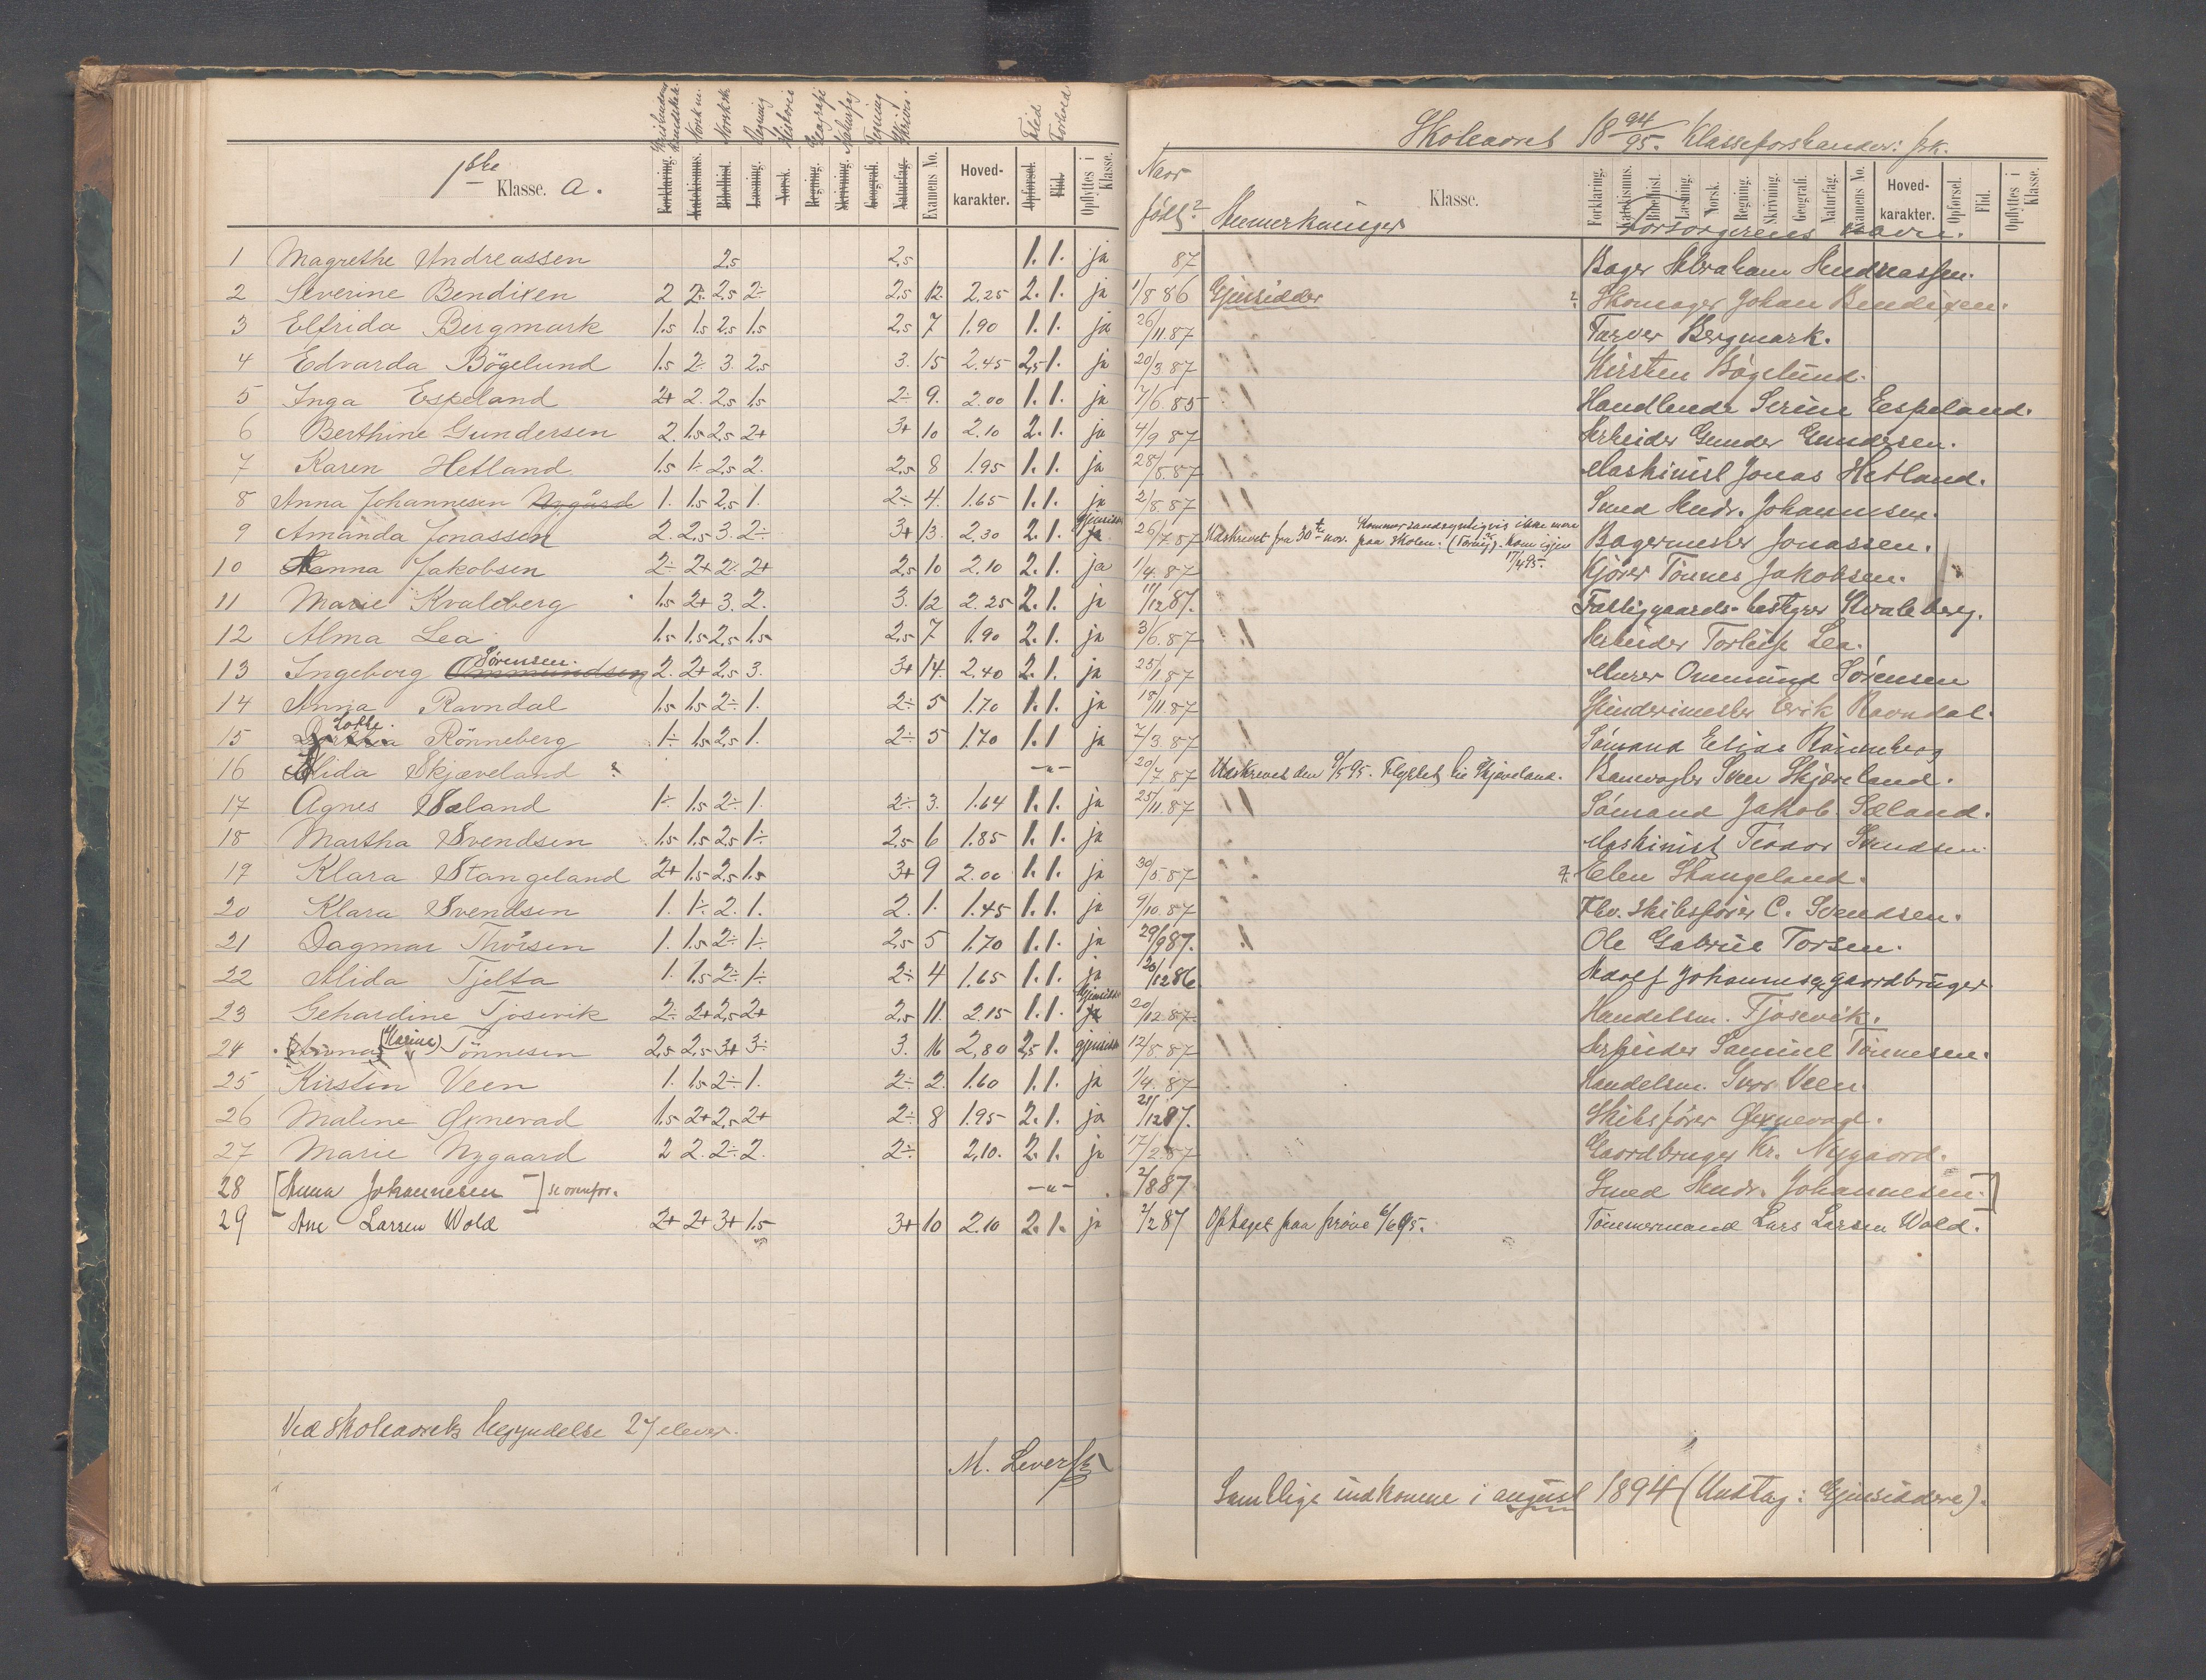 Skoleaaret 18 94/95. Klasseforstander: frk.
1ste Klasse. a.
Kristendoms Kundskab. Norsk m. Norsk sk. Regning Historie Geografi Naturfag Tegning Skriv. Flid Forhold
Forklaring. Katekismus. Bibelhist. Læsning. Norsk. Regning. Skrivning. Geografi. Naturfag. Examens No. Hoved-karakter. Opførsel. Flid. Opflyttes i Klasse.
Naar født? Anmerkninger Klasse. Forklaring. Katekismus. Bibelhist. Læsning. Norsk. Regning. Skrivning. Geografi. Naturfag. Examens No. Hoved-karakter. Opførsel. Flid. Opflyttes i Klasse.
Forsørgerens navn.
1 Magrethe Andreassen 2,5 2,5 1. 1. ja 87 Bager Abraham Andreassen.
2 Severine Bendixen 2 2. 2,5 2÷ 2,5 12. 2.25 2. 1. ja 1/8 86 Gjensidder ? Skomager Johan Bendixen.
3 Elfrida Bergmark 1.5 1.5 2,5 1.5 2,5 7 1.90 1. 1. ja 26/11.87 Farver Bergmark.
4 Edvarda Bögelund 1.5 2÷ 3. 2,5 3. 15 2.45 2,5 1. ja 20/3 87 Kirsten Bögelund.
5 Inga Espeland 2+ 2. 2,5 1,5 2÷ 9. 2.00 1. 1. ja 7/6.85 Handlende Serine Eespeland.
6 Berthine Gundersen 2. 1.5 2,5 2+ 3+ 10 2.10 2. 1. ja 4/9 87 Arbeider Gunder Gundersen.
7 Karen Hetland 1.5 1÷ 2,5 2. 2,5 8 1.95 1. 1. ja 28/5.87 Maskinist Jonas Hetland.
8 Anna Johannesen Nygård 1. 1.5 2,5 1. 2÷ 4. 1.65 1. 1. ja 2/8.87 Smed Andr. Johannesen.
9 Amanda Jonassen 2. 2,5 3. 2÷ 3+ 13. 2.30 2. 1. gjensidder ja 26/7.87 Udskrevet fra 30te nov. Kommer sandsynligvis ikke mere paa skolen. kom igjen 17/4 95. Bagermester Jonassen.
10 Hanna Jakobsen 2÷ 2+ 2÷ 2+ 2,5 10 2.10 2. 1. ja 1/4.87 Kjörer Tönnes Jakobsen.
11 Marie Kvaleberg 1.5 2+ 3. 2. 3. 12 2.25 2. 1. ja 11/12 87. Fattiggaards-bestyrer Kvaleberg.
12 Alma Lea 1.5 1.5 2,5 1.5 2,5 7 1.90 2. 1. ja 3/6.87 Arbeider Torleif Lea.
13 Ingeborg Ommundsen Sørensen. 2. 2+ 2,5 3. 3+ 14. 2.40 2. 1. ja 25/1 87 Murer Ommund Sörensen
14 Anna Ravndal 1.5 1.5 2÷ 1. 2÷ 5 1.70 1. 1. ja 18/11 87 Spinderimester Erik Ravndal.
15 Lotte. Rönneberg 1÷ 1.5 2,5 1. 2÷ 5 1.70 1. 1 ja 7/3.87 Sömand Elias Rönneberg
16 Alida Skjæveland ? -"- 20/7 87 Udskrevet den 9/5 95. Flyttet til Skjæveland. Banevogter Sven Skjæveland.
17 Agnes Sæland 1÷ 1.5 2÷ 1. 2÷ 3. 1.64 1. 1. ja 25/11.87 Sömand Jakob Sæland.
18 Martha Svendsen 1.5 1.5 2,5 1÷ 2,5 6 1.85 1. 1. ja Maskinist Teodor Svendsen.
19 Klara Stangeland 2+ 1.5 2,5 1.5 3+ 9 2.00 1. 1. ja 30/5.87 ?. Elen Stangeland.
20 Klara Svendsen 1. 1÷ 2. 1. 2. 1. 1.45 1. 1. ja 9/10.87 Fhv. skibsförer C. Svendsen.
21 Dagmar Thorsen 1. 1.5 2÷ 1÷ 2,5 5 1.70 1. 1. ja 29/9 87. Ole Gabriel Torsen.
22 Alida Tjelta 1. 1.5 2÷ 1÷ 2÷ 4 1.65 1. 1. ja 20/12 86 Adolf Johannesen gaardbruger
23 Gehardine Tjosevik 2÷ 2+ 2,5 2+ 2,5 11. 2.15 1. 1. gjensidder ja 20/12.87. Handelsm. Tjosevik.
24 (Marine) Tönnesen 2,5 2,5 3+ 3÷ 3. 16 2,80 2,5 1. gjensidder 12/8 87 Arbeider Samuel Tönnesen.
25 Kirsten Veen 1. 1.5 2÷ 1. 2÷ 2. 1.60 1. 1. ja 1/4.87 Handelsm. Veen.
26 Maline Gexnevad 1.5 2+ 2,5 2+ 2÷ 8 1.95 2. 1. ja 21/12 87. Skibsförer Gexnevad.
27 Marie Nygaard 2 2. 2÷ 2. 2÷ 2,10. 2. 1. ja 17/2 87 Gaardbruger Kr. Nygaard.
28 [Anna Johannesen -] se ovenfor. -"- 2/8 87 Smed Andr. Johannesen.]
29 Ane Larsen Wold 2+ 2+ 3+ 1.5 3+ 10 2.10 2. 1. ja 2/2 87 Optaget paa pröve 6/6 95. Tömmermand Lars Larsen Wold.
Ved skoleaarets begyndelse 27 elever.
M. Levers
Samtlige indkomne i august 1894 (Undtag: Gjensiddere).